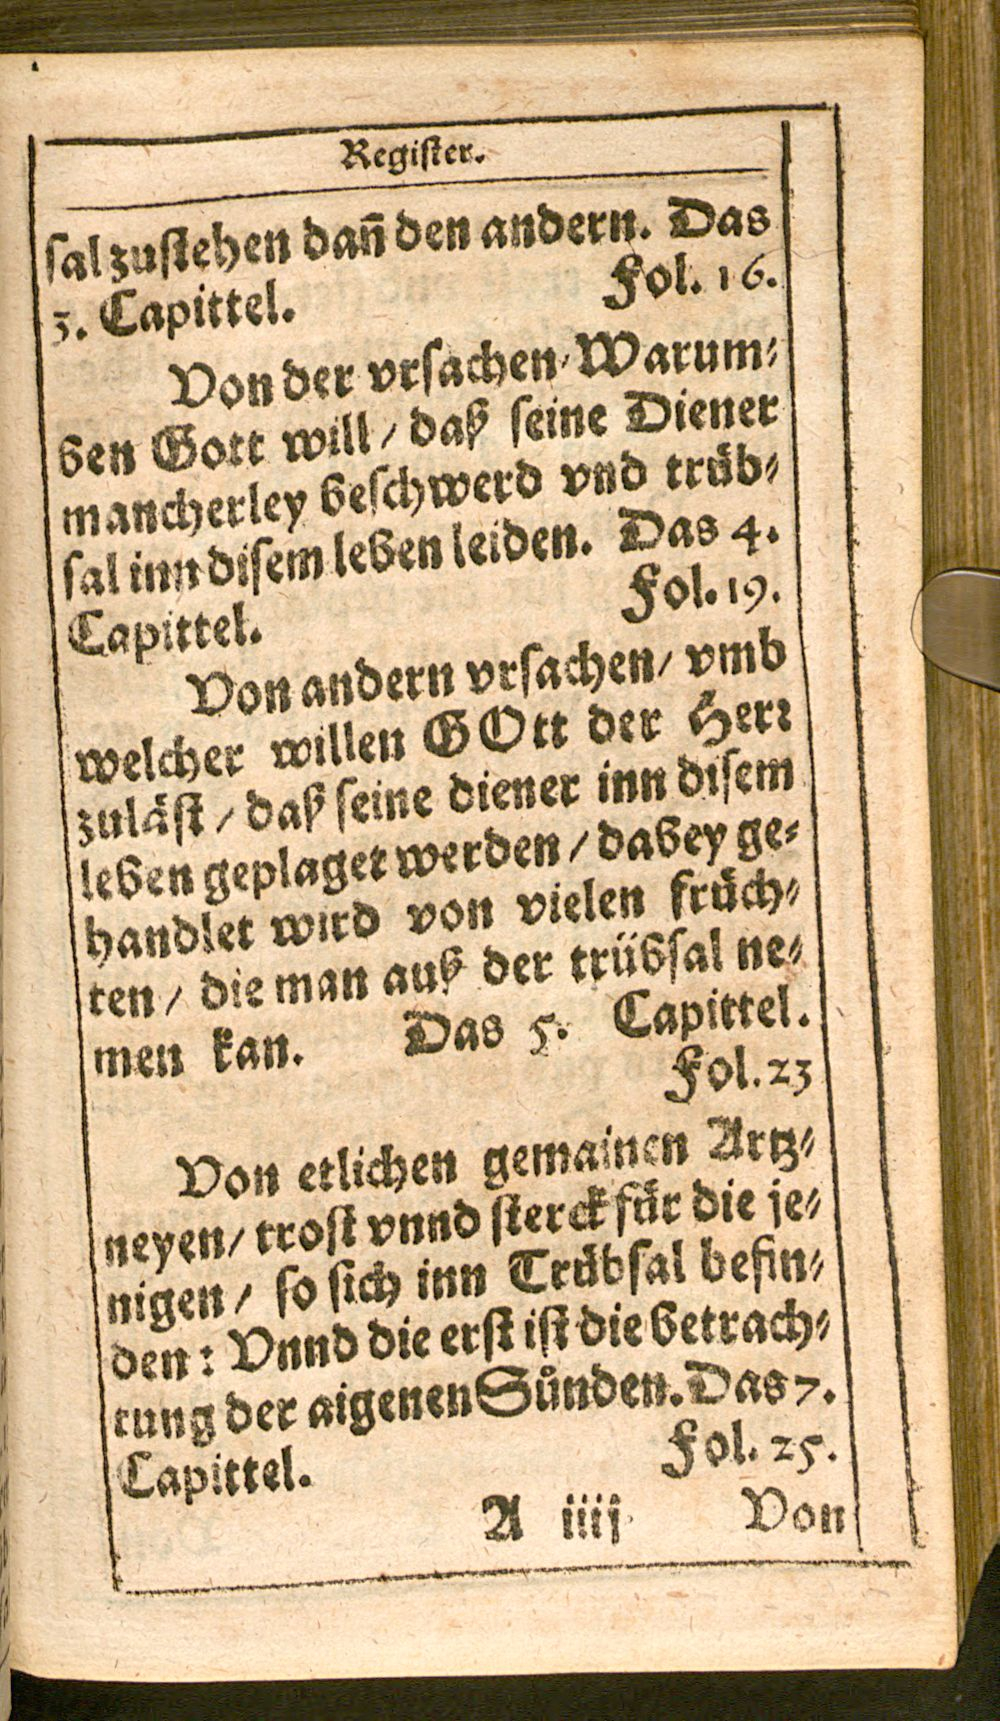 Register.
sal zustehen dañ den andern. Das
3. Capittel. Fol. 16.
Von der vrsachen/ Warum⸗
ben Gott will / daß seine Diener
mancherley beschwerd vnd trüb⸗
sal inn disem leben leiden. Das 4.
Capittel. Fol. 19.
Von andern vrsachen/ vmb
welcher willen GOtt der Herꝛ
zuläst / daß seine diener inn disem
leben geplaget werden / dabey ge⸗
handlet wird von vielen früch⸗
ten / die man auß der trübsal ne⸗
men kan. Das 5. Capittel.
Fol. 23
Von etlichen gemainen Artz⸗
neyen/ trost vnnd sterck für die je⸗
nigen / so sich inn Trübsal befin⸗
den: Vnnd die erst ist die betrach⸗
tung der aigenen Sünden. Das 7.
Capittel. Fol. 25.
A iiij Von